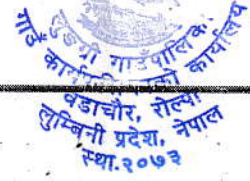 लुङग्री गाउँपालिका
गाउँ कार्यपालिकाको कार्यालय
वडाचौर, रोल्पा
लुम्बिनी प्रदेश, नेपाल
स्था.२०७३